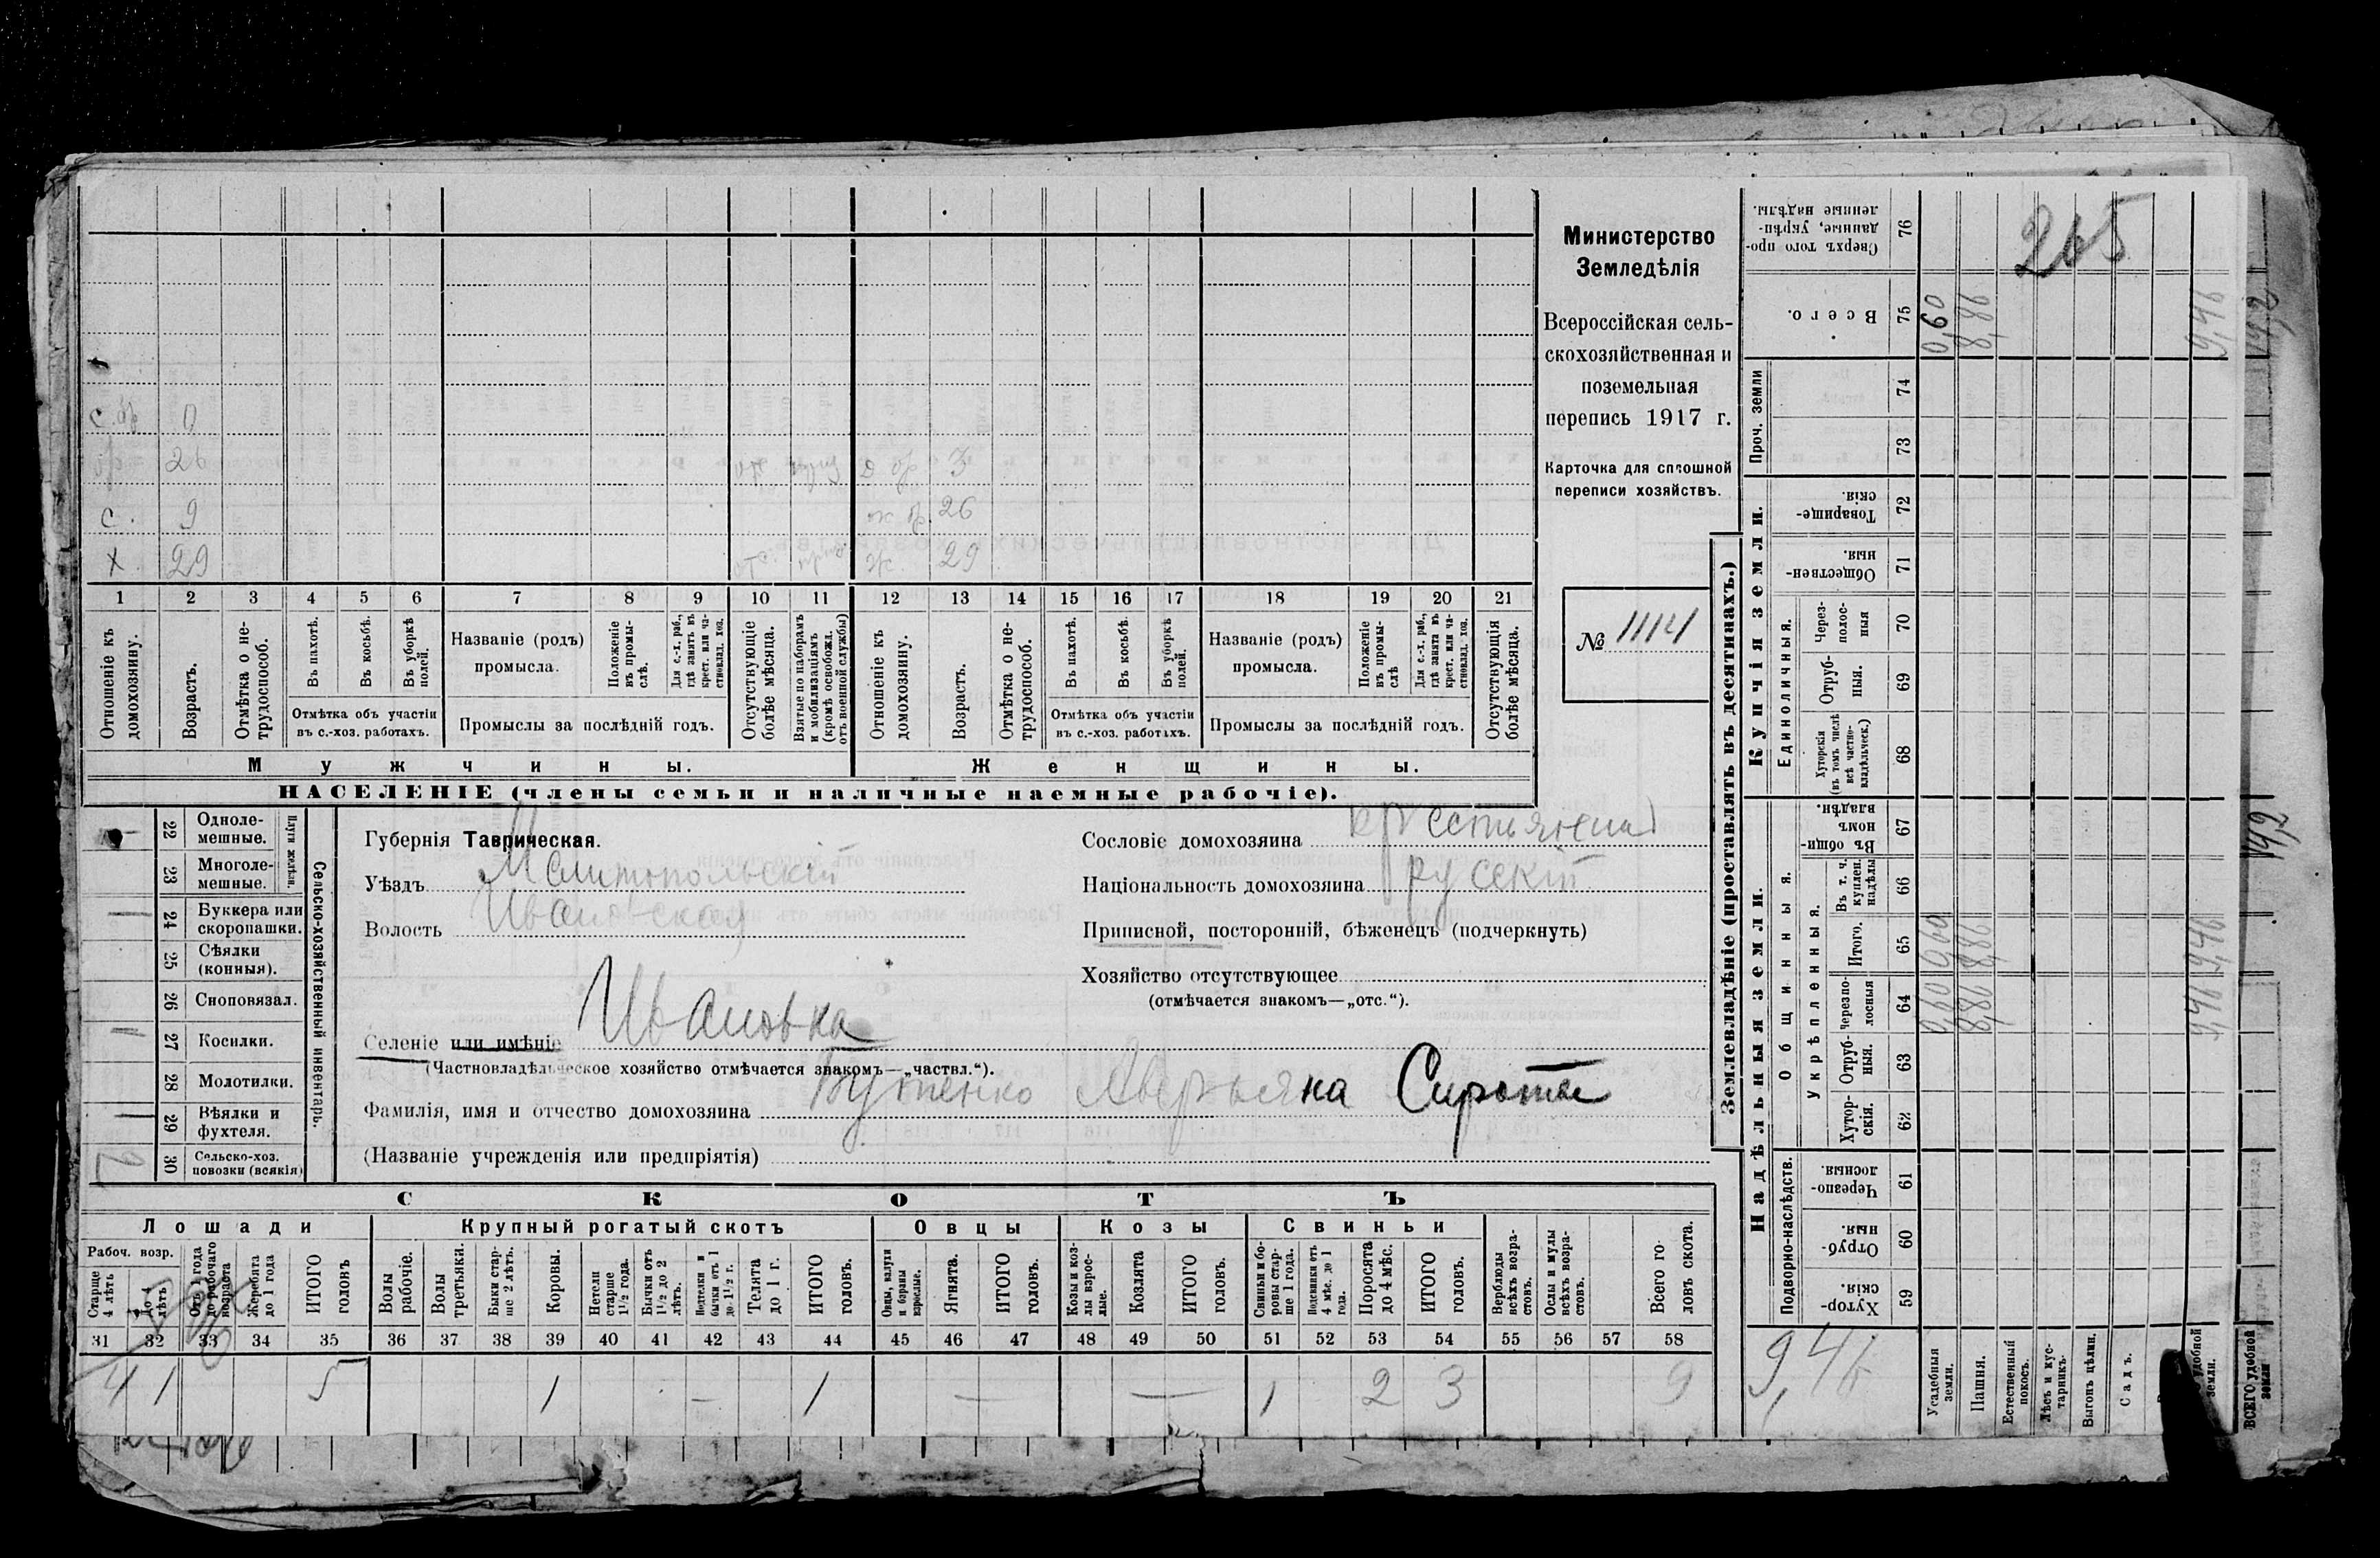 Министерство
Земледѣлія
Всероссійская сель-
скохозяйственная и
поземельная
перепись 1917 г.
Карточка для сплошной
переписи хозяйствъ.
№
с. бр.
бр. 26 отс. 3
с. 9 ж бр. 26
х. 29 отс. ж 29
1 2 3 4 5 6 7 8 9 10 11 12 13 14 15 16 17 18 19 20 21
Отношеніе къ домохозяину.
Возрастъ.
Отмѣтка о не-трудоспособ.
Въ пахотѣ.
Въ косьбѣ.
Въ уборкѣ полей.
Отмѣтка объ участіи въ с.-хоз. работахъ.
Названіе (родъ) промысла.
Положеніе въ промы-слѣ.
Для с.-х. раб., гдѣ занятъ въ крест. или ча-стновлад. хоз.
Промыслы за послѣдній годъ.
Отсутствующіе болѣе мѣсяца.
Взятые по наборамъ и мобилизаціямъ (кромѣ освобожд. отъ военной службы)
Отношеніе къ домохозяину.
Возрастъ.
Отмѣтка о не-трудоспособ.
Въ пахотѣ.
Въ косьбѣ.
Въ уборкѣ полей.
Отмѣтка объ участіи въ с.-хоз. работахъ.
Названіе (родъ) промысла.
Положеніе въ промы-слѣ
Для с.-х. раб., гдѣ занята въ крест. или ча-стновлад. хоз.
Промыслы за послѣдній годъ.
Отсутствующія болѣе мѣсяца.
Мужчины.
Женщины.
НАСЕЛЕНІЕ (члены семьи и наличные наемные рабочіе).
Сельско-хозяйственный инвентарь.
Плуги желѣзн.
22 Одноле-мешные.
23 Многоле-мешные.
1 24 Буккера или скоропашки.
25 Сѣялки (конныя).
26 Сноповязал.
1 27 Косилки.
28 Молотилки.
1 29 Вѣялки и фухтеля.
2 30 Сельско-хоз. повозки (всякія)
Губернія Таврическая.
Уѣздъ Мелитопольскій
Волость Ивановская
Селеніе или имѣніе Ивановка
(Частновладѣльческое хозяйство отмѣчается знакомъ—„частвл.“).
Фамилія, имя и отчество домохозяина Бутенко Аверьяна Сироты
(Названіе учрежденія или предпріятія)
Сословіе домохозяина крестьянин
Національность домохозяина русскій
Приписной, посторонній, бѣженецъ (подчеркнуть)
Хозяйство отсутствующее
(отмѣчается знакомъ—„отс.“).
СКОТЪ
Лошади
Крупный рогатый скотъ
Овцы
Козы
Свиньи
Рабоч. возр.
Старше 4 лѣтъ
До 4 лѣтъ
Отъ 1 года до рабочаго возраста
Жеребята до 1 года
ИТОГО головъ
Волы рабочіе.
Волы третьяки.
Быки стар-ше 2 лѣтъ.
Коровы.
Нетели старше 1½ года.
Бычки отъ 1½ до 2 лѣтъ.
Подтелки и бычки отъ 1 до 1½ г.
Телята до 1 г.
ИТОГО головъ.
Овцы, валухи и бараны взрослые.
Ягнята.
ИТОГО головъ.
Козы и коз-лы взрос-лые.
Козлята
ИТОГО головъ.
Свиньи и бо-ровы стар-ше 1 года.
Подсвинки отъ 4 мѣс. до 1 года.
Поросята до 4 мѣс.
ИТОГО головъ.
Верблюды всѣхъ возра-стовъ.
Ослы и мулы всѣхъ возра-стовъ.
Всего го-ловъ скота.
31 32 33 34 35 36 37 38 39 40 41 42 43 44 45 46 47 48 49 50 51 52 53 54 55 56 57 58
4 1 5 1 — 1 — — 1 2 3 9
Землевладѣніе (проставлять въ десятинахъ.)
Надѣльныя земли.
Купчія земли.
Проч. земли
Подворно-наслѣдств.
Общинныя.
Укрѣпленныя.
Единоличныя.
Хутор-скія. 59
Отруб-ныя. 60
Черезпо-лосныя 61
Хутор-скія. 62
Отруб-ныя. 63
Черезпо-лосныя 64
Итого. 65
Въ т. ч. куплен. надѣлы 66
Въ общин-номъ владѣн. 67
Хуторскія (въ томъ числѣ всѣ частно-владѣльческ.) 68
Отруб-ныя. 69
Через-полос-ныя 70
Обществен-ныя. 71
Товарище-скія. 72
73
74
Всего. 75
Сверхъ того про-данные, укрѣп-ленные надѣлы. 76
265
9,46
Усадебныя земли. 0,60 0,60 0,60
Пашня. 8,86 8,86 8,86
Естественный покосъ.
Лѣсъ и кус-тарникъ.
Выгонъ цѣлин.
Садъ.
удобной земли. 9,46 9,46 9,46
ВСЕГО удобной земли